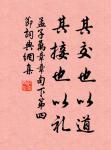 其交也以道
其接也以礼
孟子萬章章句下第四
節詞典網集